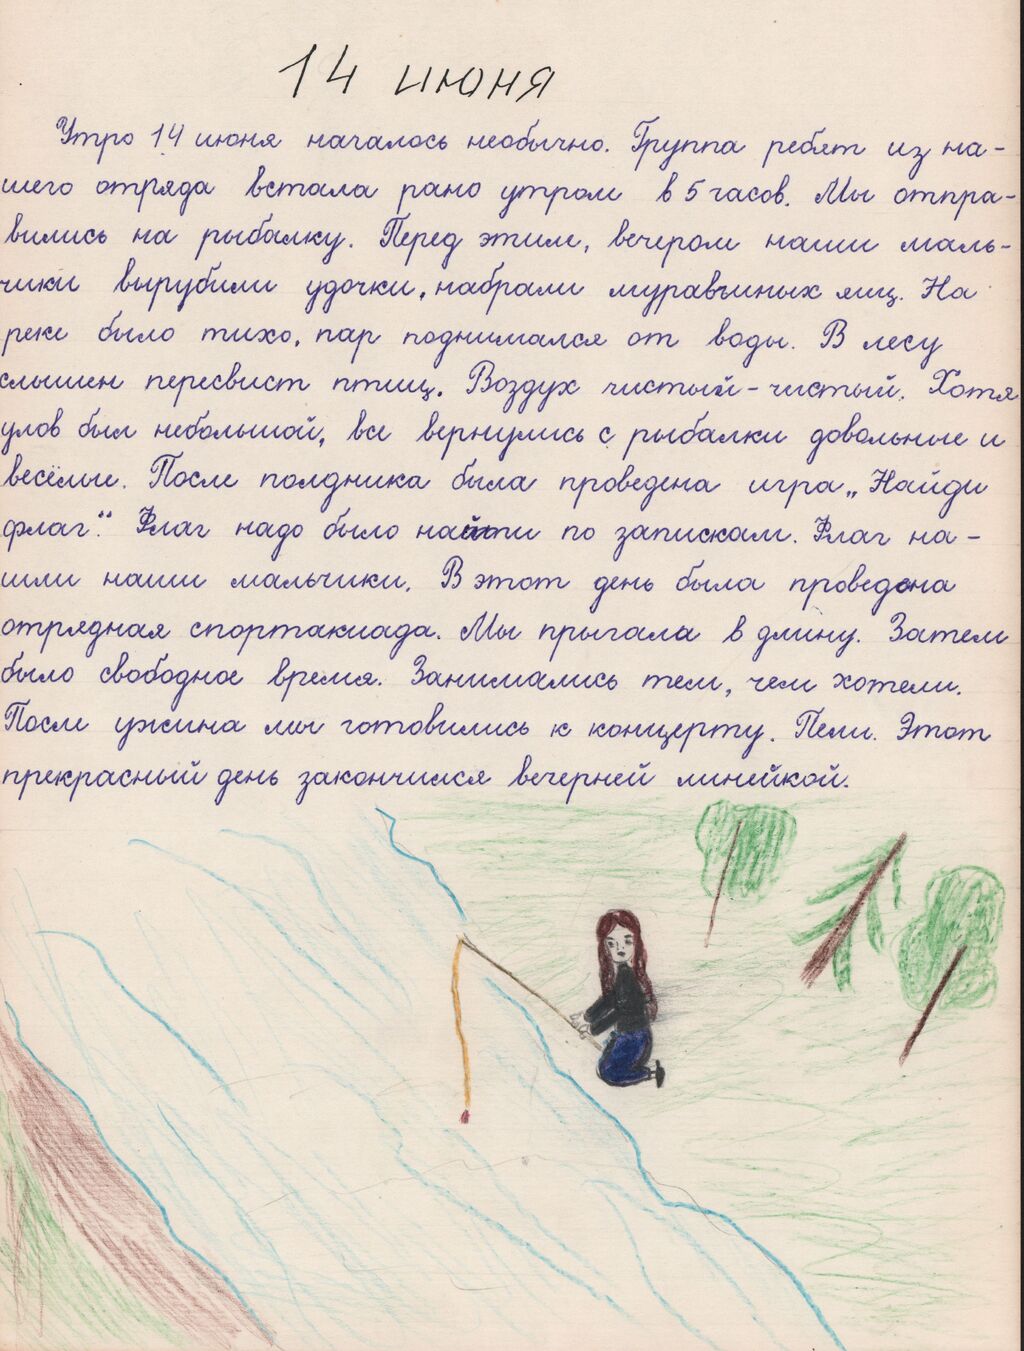 14 июня
Утро 14 июня началось необычно. Группа ребят из на-
шего отряда встала рано утром в 5 часов. Мы отпра-
вились на рыбалку. Перед этим, вечером наши маль-
чики вырубили удочки, набрали муравьиных яиц. На
реке было тихо, пар поднимался от воды. В лесу
слышен пересвист птиц. Воздух чистый-чистый. Хотя
улов был небольшой, все вернулись с рыбалки довольные и
весёлые. После полдника была проведена игра „Найди
флаг“. Флаг надо было найти по запискам. Флаг на-
шли наши мальчики. В этот день была проведена
отрядная спортакиада. Мы прыгала в длину. Затем
было свободное время. Занимались тем, чем хотели.
После ужина мы готовились к концерту. Пели. Этот
прекрасный день закончился вечерней линейкой.